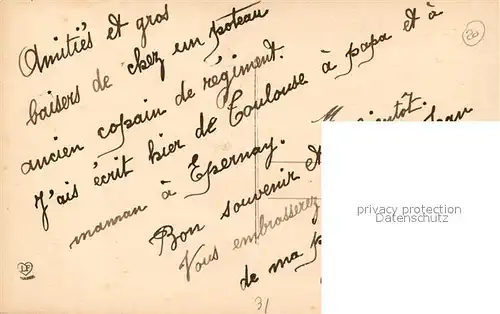 Amitiés et gros
baisers de chez un poteau
ancien copain de régiment.
J'ais écrit hier de Toulouse à papa et à
maman à Epernay.
Bon souvenir et
Vous embrasserez
de ma p
20
31
privacy protection
Datenschutz